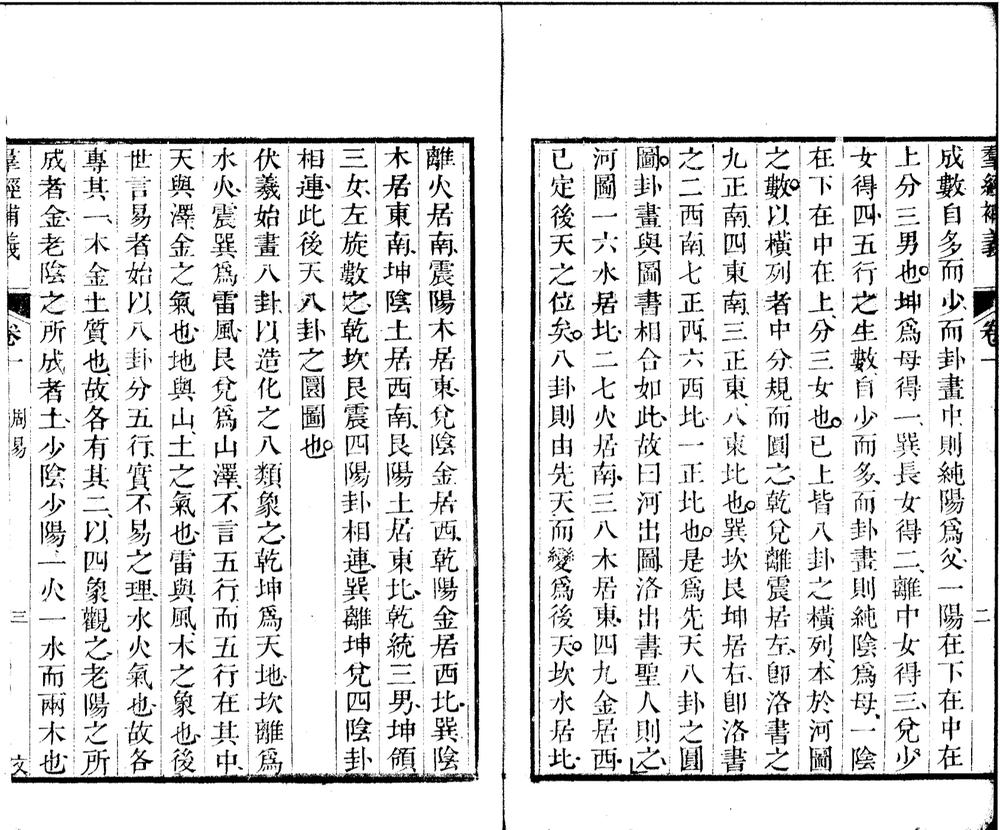 羣經補義 卷一 二
成數自多而少而卦畫中則純陽爲父一陽在下在中在
上分三男也坤爲母得一巽長女得二離中女得三兌少
女得四五行之生數自少而多而卦畫則純陰爲母一陰
在下在中在上分三女也已上皆八卦之橫列本於河圖
之數以橫列者中分規而圓之乾兌離震居左卽洛書之
九正南四東南三正東八東北也巽坎艮坤居右卽洛書
之二西南七正西六西北一正北也是爲先天八卦之圓
圖卦畫與圖書相合如此故曰河出圖洛出書聖人則之
河圖一六水居北二七火居南三八木居東四九金居西
已定後天之位矣八卦則由先天而變爲後天坎水居北
離火居南震陽木居東兌陰金居西乾陽金居西北巽陰
木居東南坤陰土居西南艮陽土居東北乾統三男坤領
三女左旋數之乾坎艮震四陽卦相連巽離坤兌四陰卦
相連此後天八卦之圜圖也
伏羲始畫八卦以造化之八類象之乾坤爲天地坎離爲
水火震巽爲雷風艮兌爲山澤不言五行而五行在其中
天與澤金之氣也地與山土之氣也雷與風木之象也後
世言易者始以八卦分五行實不易之理水火氣也故各
專其一木金土質也故各有其二以四象觀之老陽之所
成者金老陰之所成者土少陰少陽一火一水而兩木也
羣經補義 卷一 周易 三 文